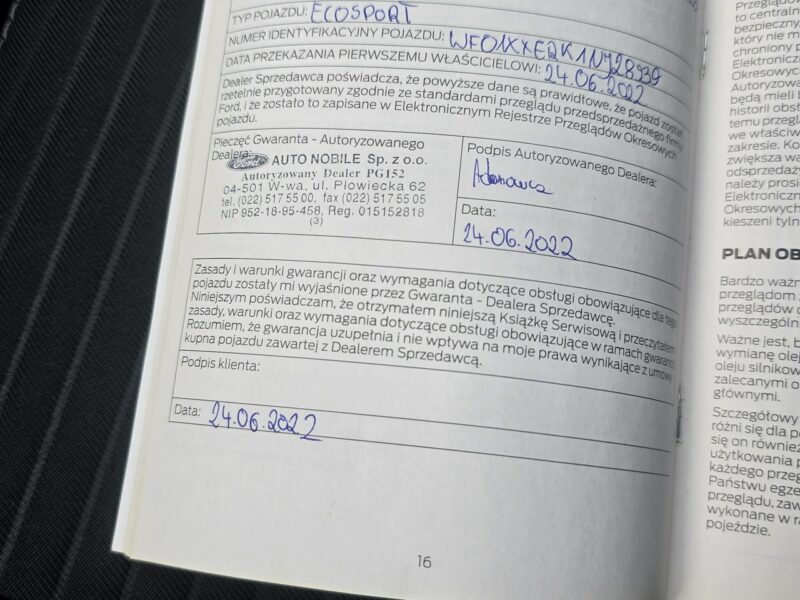 TYP POJAZDU: ECOSPORT
NUMER IDENTYFIKACYJNY POJAZDU: WF01XXERK1NY28939
DATA PRZEKAZANIA PIERWSZEMU WŁAŚCICIELOWI: 24.06.2022
Dealer Sprzedawca poświadcza, że powyższe dane są prawidłowe, że pojazd został
rzetelnie przygotowany zgodnie ze standardami przeglądu przedsprzedażnego firmy
Ford, i że zostało to zapisane w Elektronicznym Rejestrze Przeglądów Okresowych
pojazdu.
Pieczęć Gwaranta - Autoryzowanego
Dealera:
Ford AUTO NOBILE Sp. z o.o.
Autoryzowany Dealer PG152
04-501 W-wa, ul. Płowiecka 62
tel. (022) 517 55 00, fax (022) 517 55 05
NIP 952-18-95-458, Reg. 015152818
(3)
Podpis Autoryzowanego Dealera:
Data:
24.06.2022
Zasady i warunki gwarancji oraz wymagania dotyczące obsługi obowiązujące dla tego
pojazdu zostały mi wyjaśnione przez Gwaranta - Dealera Sprzedawcę.
Niniejszym poświadczam, że otrzymałem niniejszą Książkę Serwisową i przeczytałem
zasady, warunki oraz wymagania dotyczące obsługi obowiązujące w ramach gwarancji.
Rozumiem, że gwarancja uzupełnia i nie wpływa na moje prawa wynikające z umowy
kupna pojazdu zawartej z Dealerem Sprzedawcą.
Podpis klienta:
Data: 24.06.2022
16
to centraln
bezpieczny
który nie m
chroniony p
Elektronicz
Okresowych
Autoryzowa
będą mieli
historii obs
temu przegl
we właściw
zakresie. Ko
zwiększa wa
odsprzedaży
należy prosi
Elektronicz
Okresowych
kieszeni tyln
PLAN OB
Bardzo ważn
przeglądom
przeglądów
wyszczególn
Ważne jest, b
wymianę olej
oleju silnikow
zalecanymi o
głównymi.
Szczegółowy
różni się dla p
się on również
użytkowania p
każdego przeg
Państwu egze
przeglądu, zaw
wykonane w ra
pojeździe.